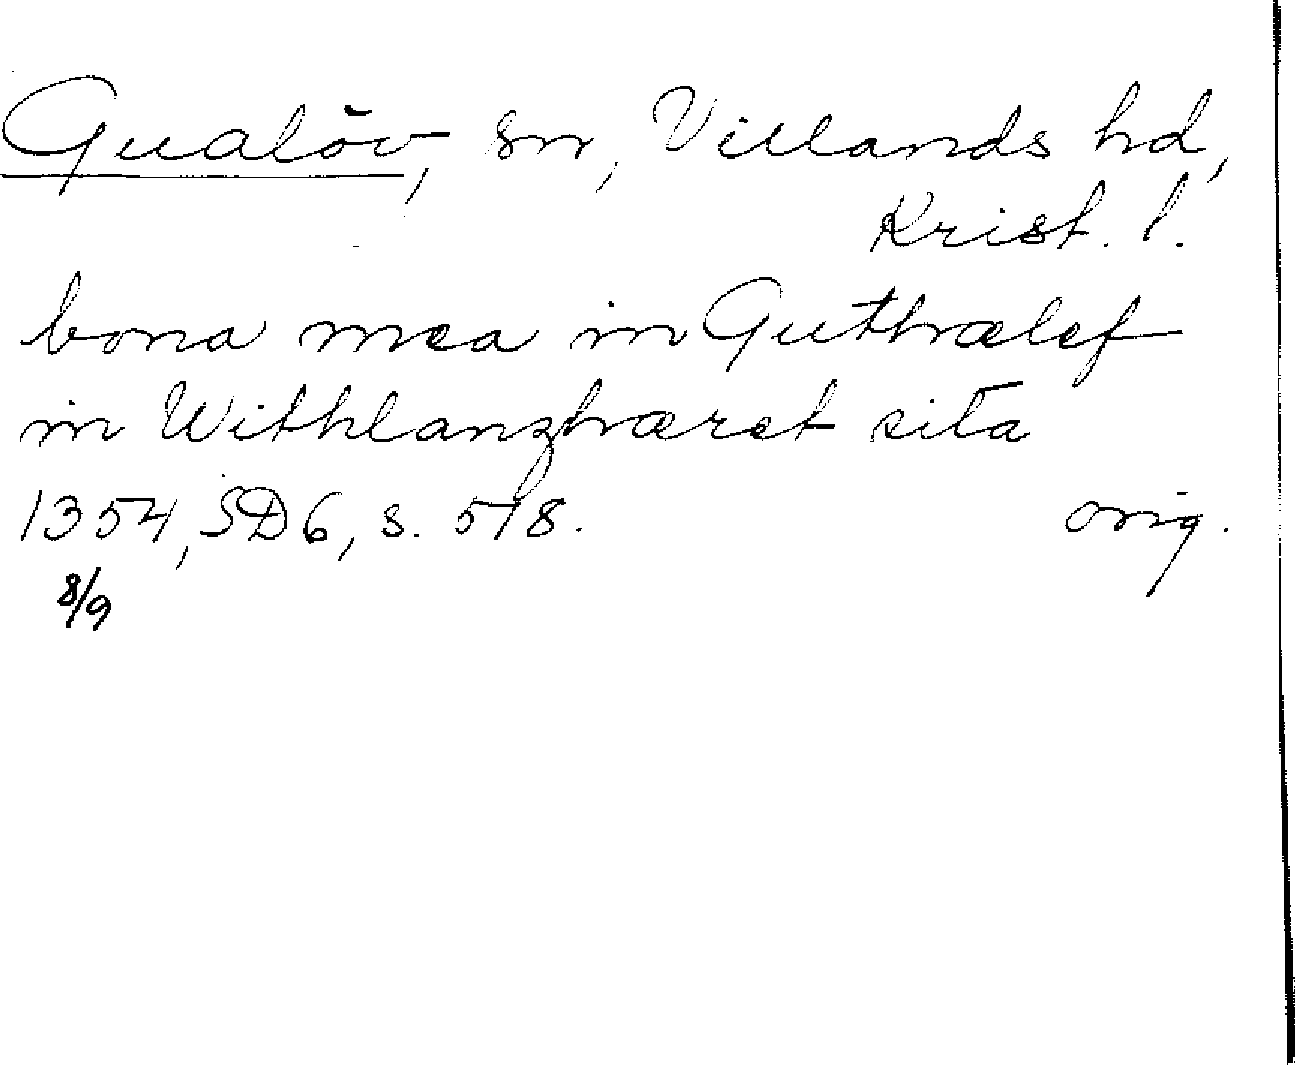 Gualöv, sn, Villands hd,
Krist. l.
bona mea in Guthrælef
in Withlanzhæret sita
1354, SD6, s. 578. orig.
8/9